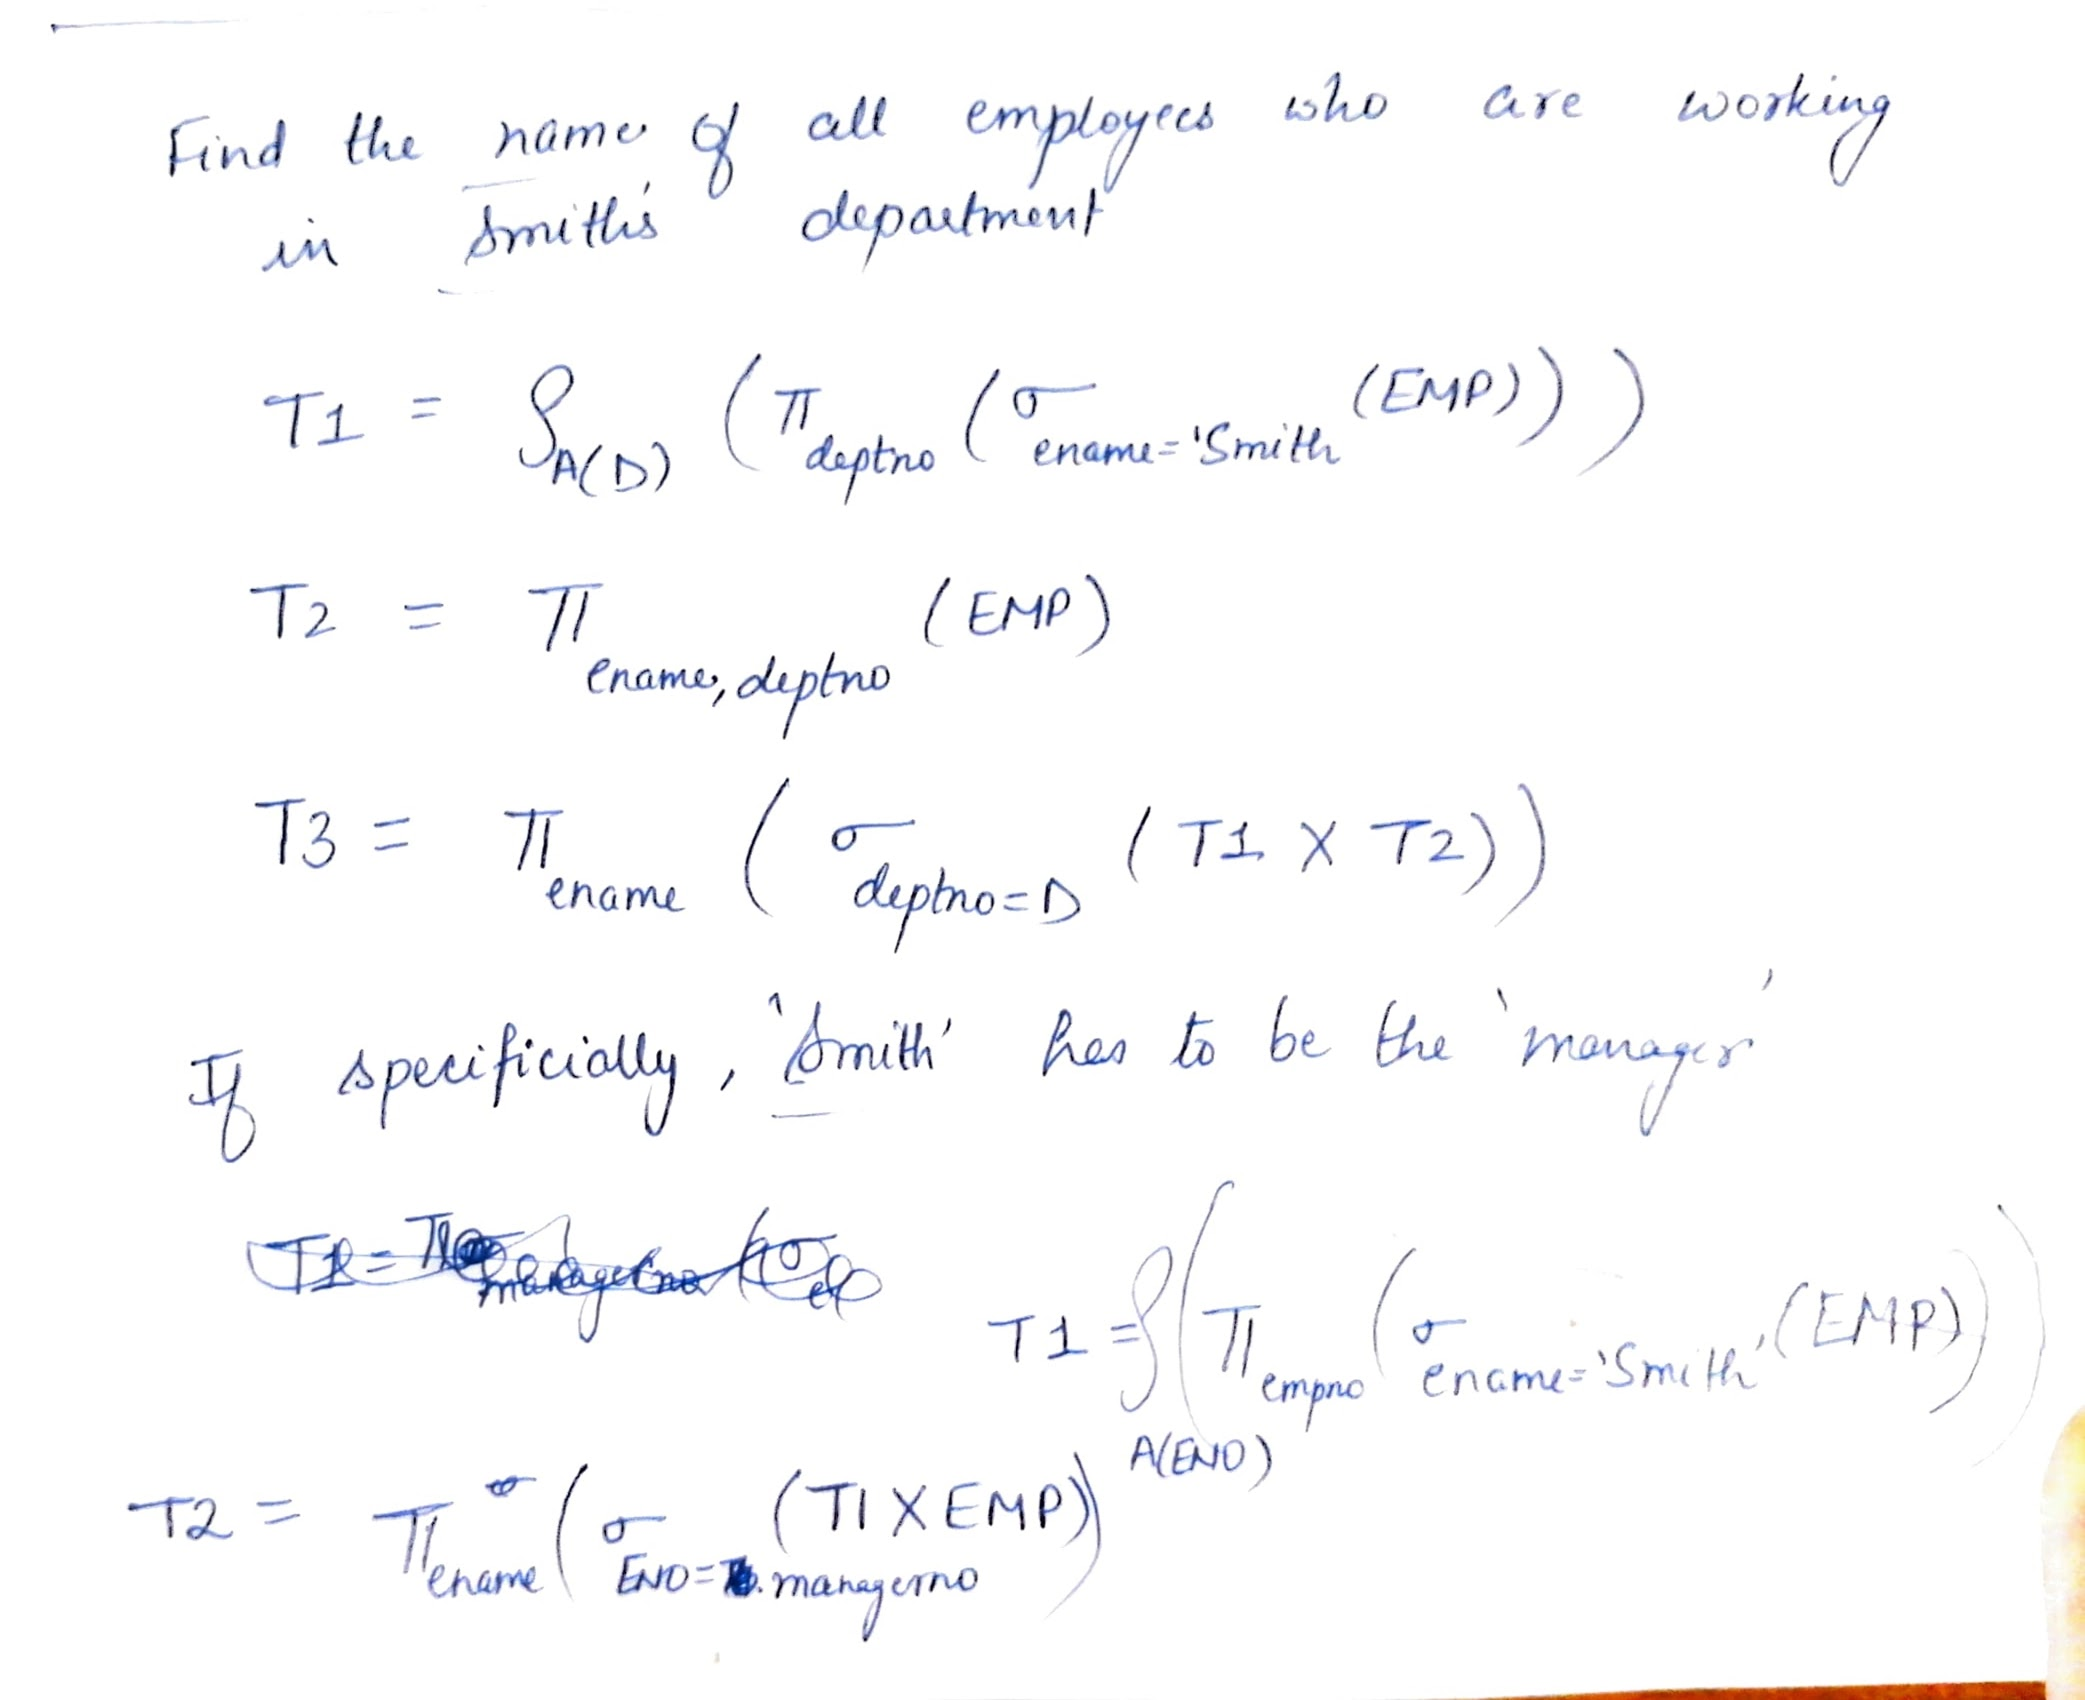 Find the name of all employees who are working
in Smith's department
T1 = ρ A(D) (π deptno (σ ename='Smith (EMP)))
T2 = π ename, deptno (EMP)
T3 = π ename (σ deptno=D (T1 X T2))
If specificially, 'Smith' has to be the 'manager'
T1 = ρ A(ENO) (π empno (σ ename='Smith' (EMP)))
T2 = π ename (σ ENO=.managerno (T1 X EMP))